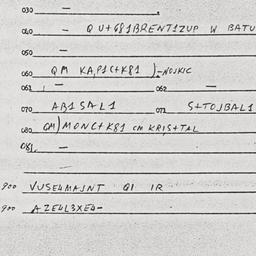 030 —
040 - QU+681BRENT1ZUP W BATU
050 —
060 QM KA,P1C+K81 )-NOJKIC
061 — 062 —
070 AB1SAL1 071 S+TOJBAL1
080 QM) MONC+K81 CM KRIS+TAL
081. —
900 VUSE4MAJNT Q1 IR
900 AZE4L3XE4-